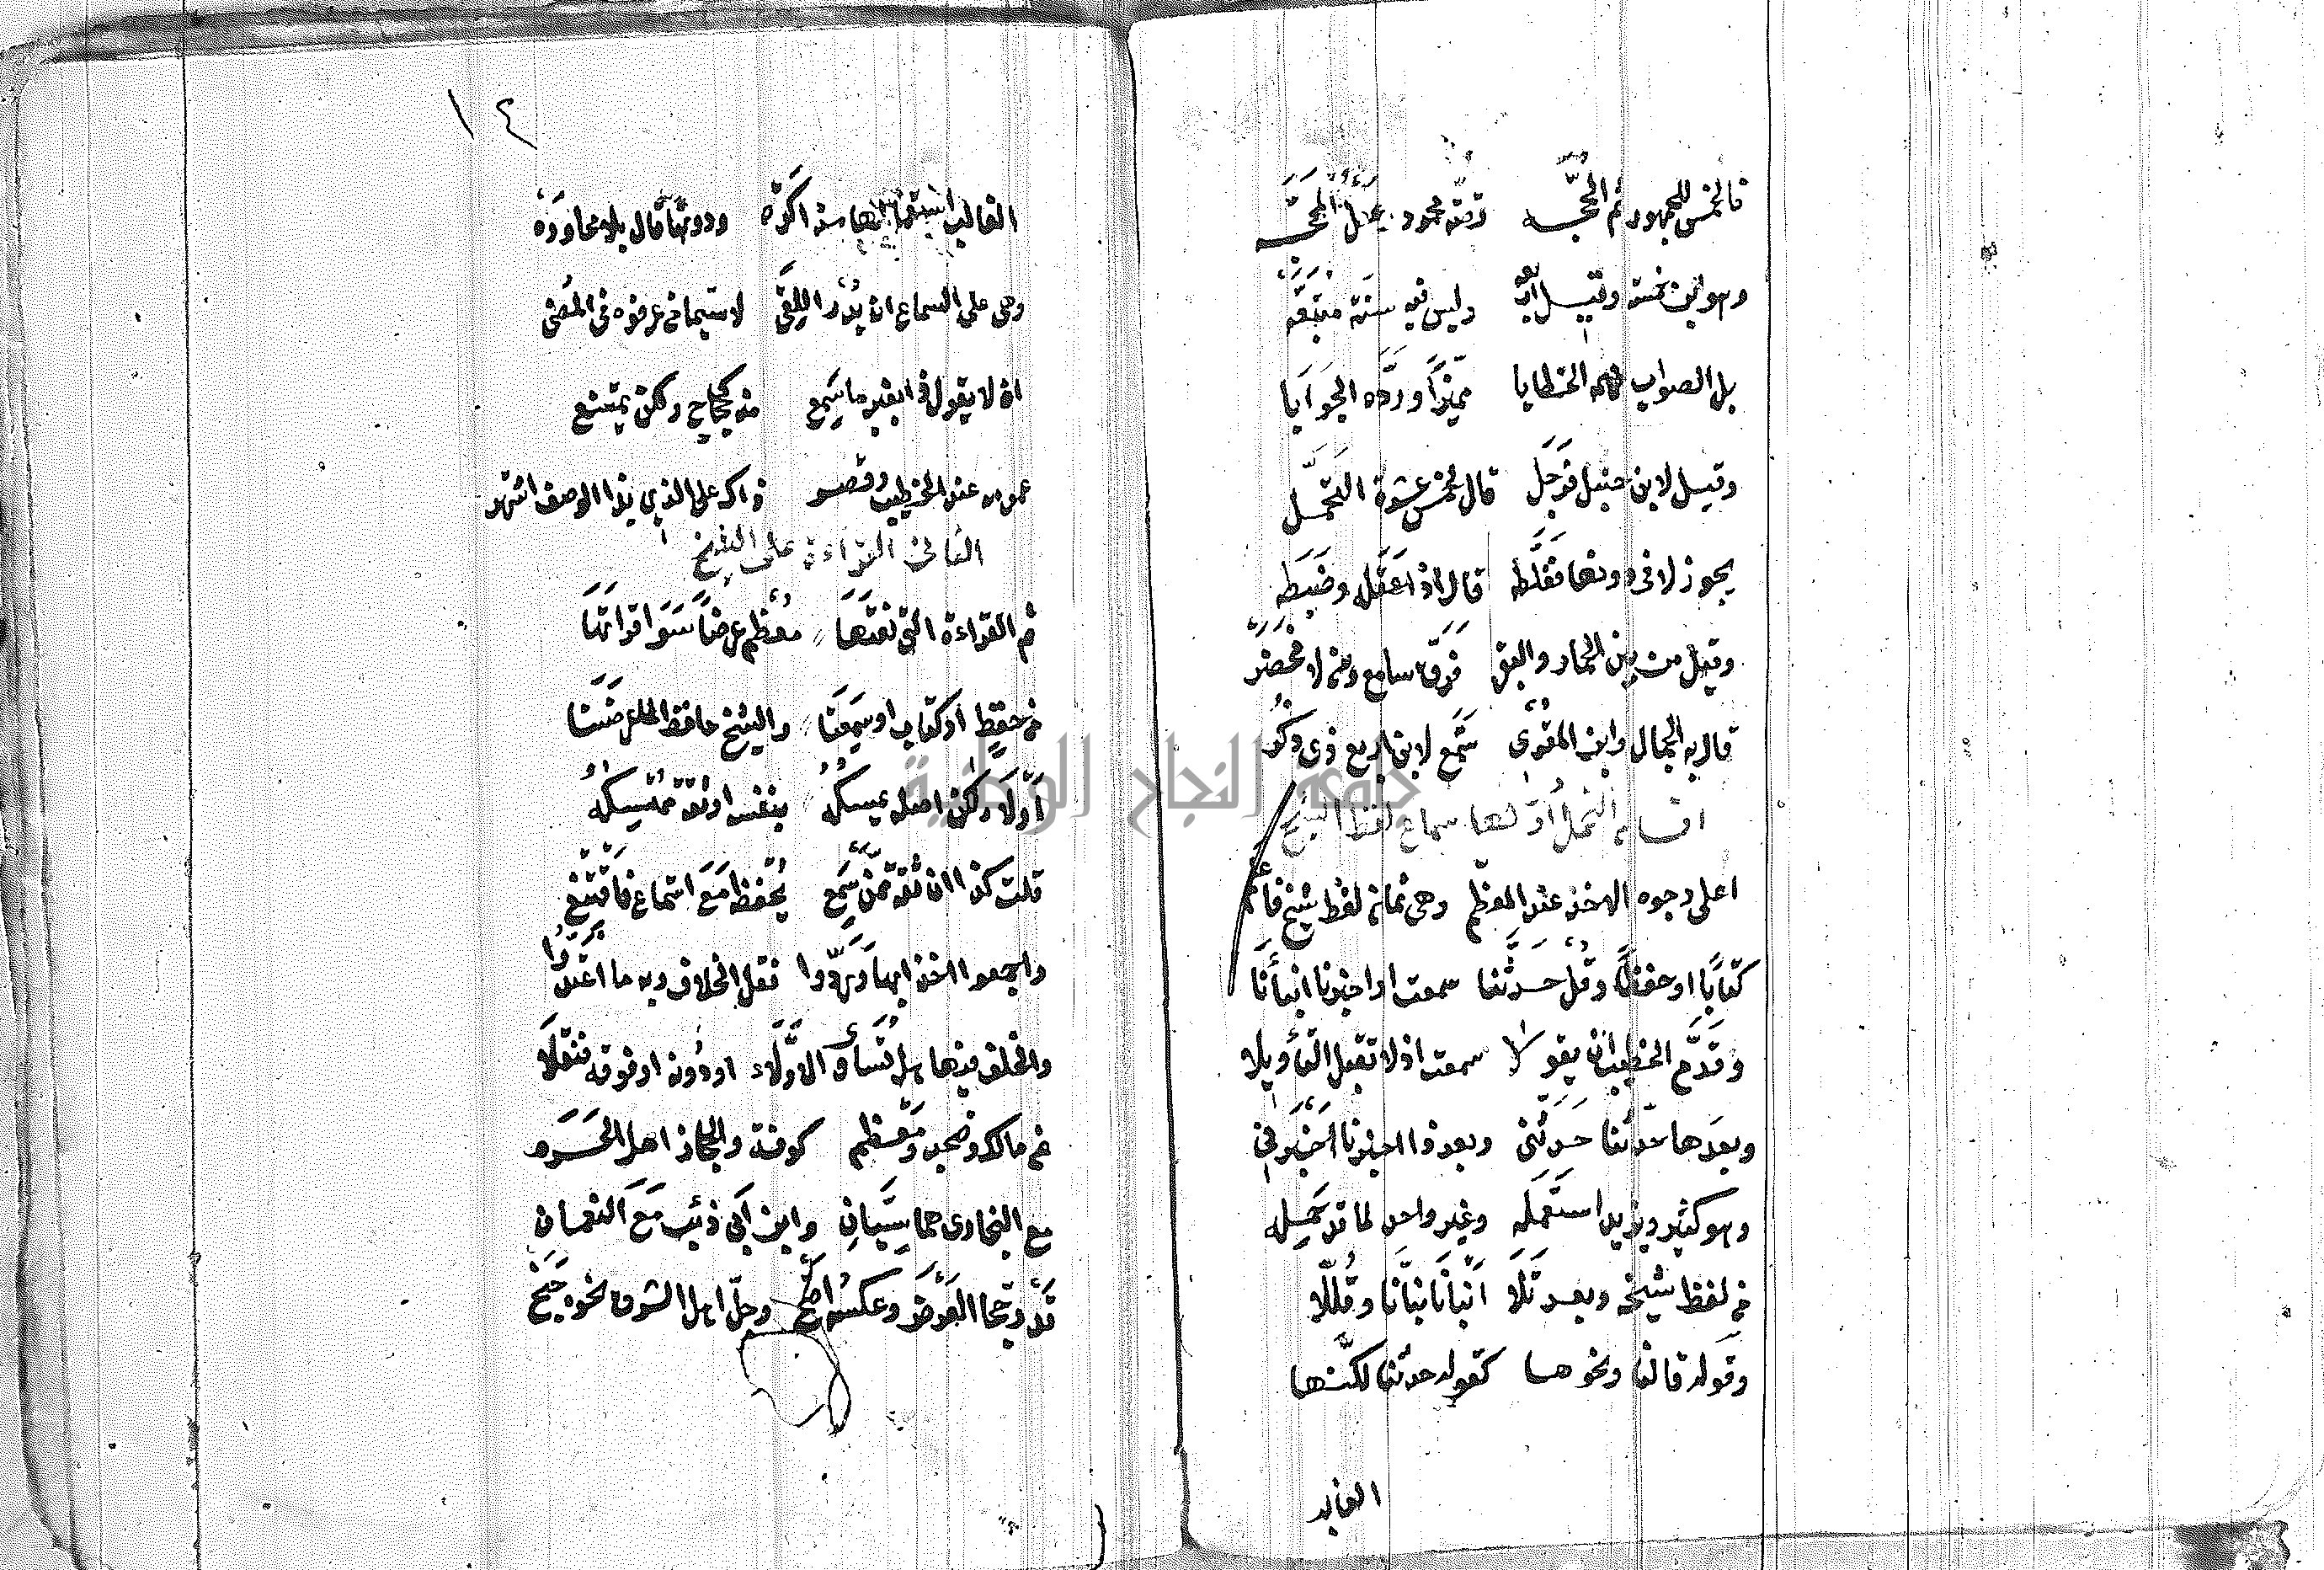 فالخمس للجمهور ثم الحجه قصة محمود وعقل المجه
وهو ابن خمسة وقيل اربعه وليس فيه سنة متبعه
بل الصواب فهمه الخطابا مميزا ورده الجوابا
وقيل لابن حنبل فرجل قال لخمس عشرة التحمل
يجوز لا في دونها فغلطه قال اذا عقله وضبطه
وقيل من بين الحمار والبقر فرق سامع ومن لا فحضر
قال به الجمال وابن المقري سمع لابن اربع ذي ذكر
اقسام التحمل اولها سماع لفظ الشيخ
اعلى وجوه الاخذ عند المعظم وهي ثمان لفظ شيخ فاعلم
كتابا او حفظا وقل حدثنا سمعت او اخبرنا انبأنا
وقدم الخطيب ان يقولا سمعت اذ لا تقبل التأويلا
وبعدها حدثنا حدثني وبعد ذا اخبرنا اخبرني
وهو كثير ويزيد استعمله وغير واحد لما قد حمله
من لفظ شيخه وبعد تلا انبانا نبانا وقللا
وقوله قال لنا ونحوها كقوله حدثنا لكنها
الغالب
١٤
الغالب استعمالها مذاكره ودونها قال بلا مجاوره
وهي على السماع ان يدر اللقي لا سيما من عرفوه في المضي
ان لا يقول ذا بغير ما سمع منه كحجاج ولكن يمتنع
عمومه عند الخطيب وقصر ذاك على الذي بذا الوصف اشتهر
الثاني القراءة على الشيخ
ثم القراءة التي نعتها معظم عرضا سوا قراتها
من حفظ او كتاب او سمعتا والشيخ حافظ لما عرضتا
اولا ولكن اصله يمسكه بنفسه او ثقة ممسكه
قلت كذا ان ثقة ممن سمع يحفظه مع استماع فاقتنع
واجمعوا اخذا بها وردوا نقل الخلاف وبه ما اعتدوا
والخلف فيها هل تساوي الاولا او دونه او فوقه فنقلا
عن مالك وصحبه ومعظم كوفة والحجاز اهل الحرم
مع البخاري هما سيان وابن ابي ذئب مع النعمان
قد رجحا العرض وعكسه اصح وجل اهل الشرق نحوه جنح